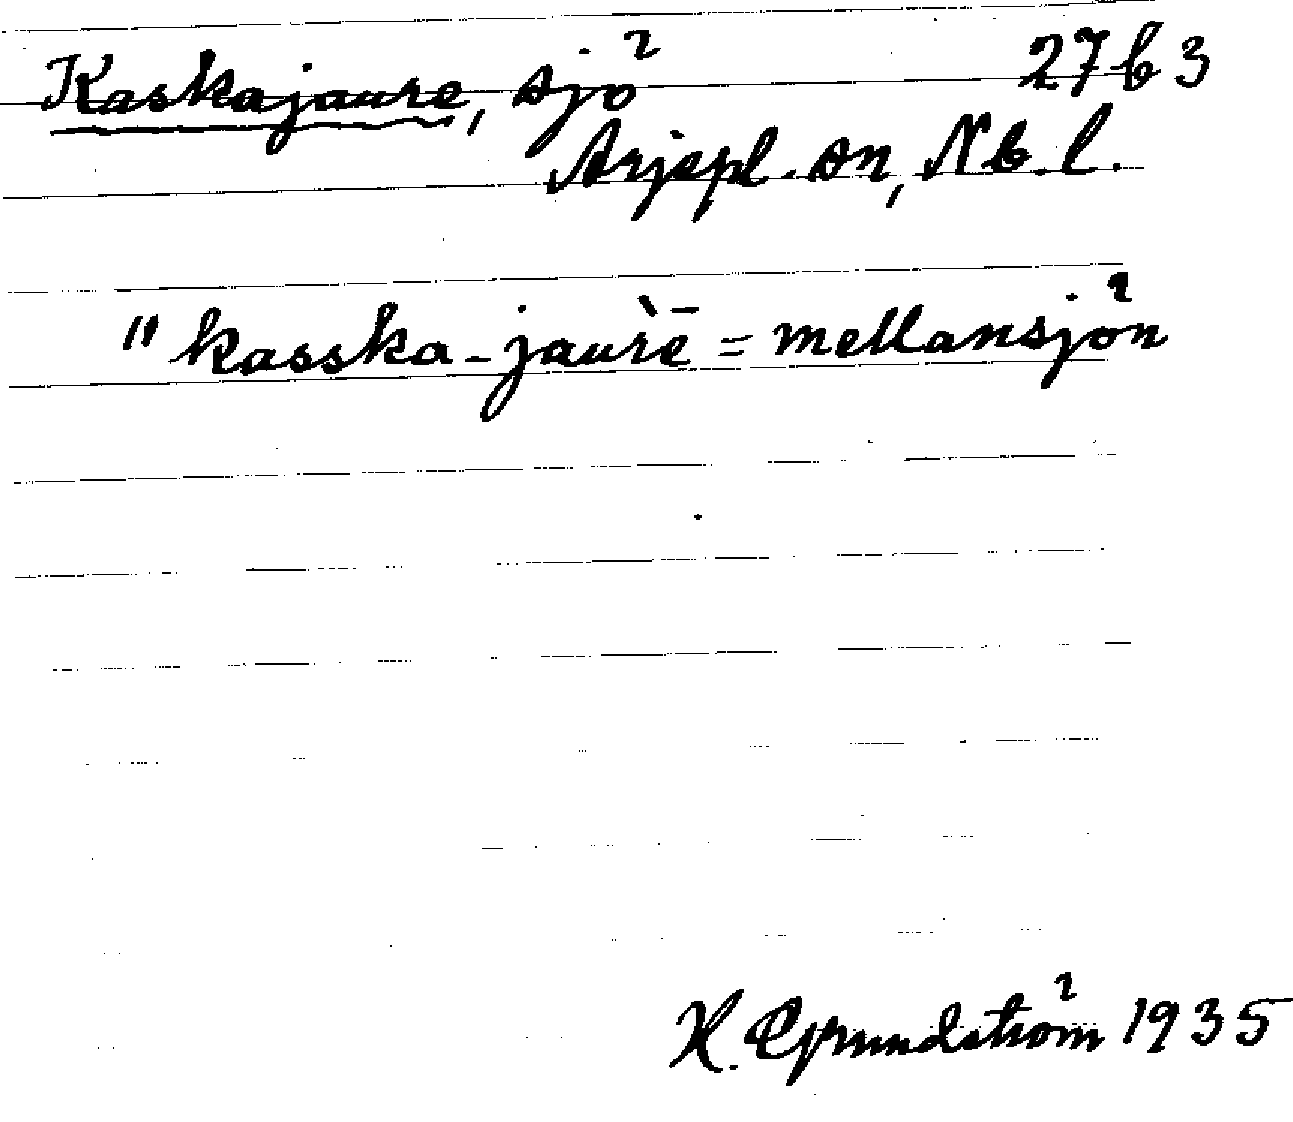 Kaskajaure, sjö 27b3
Arjepl. sn, Nb.l.
" kasska-jaùrē = mellansjön
H. Grundström 1935